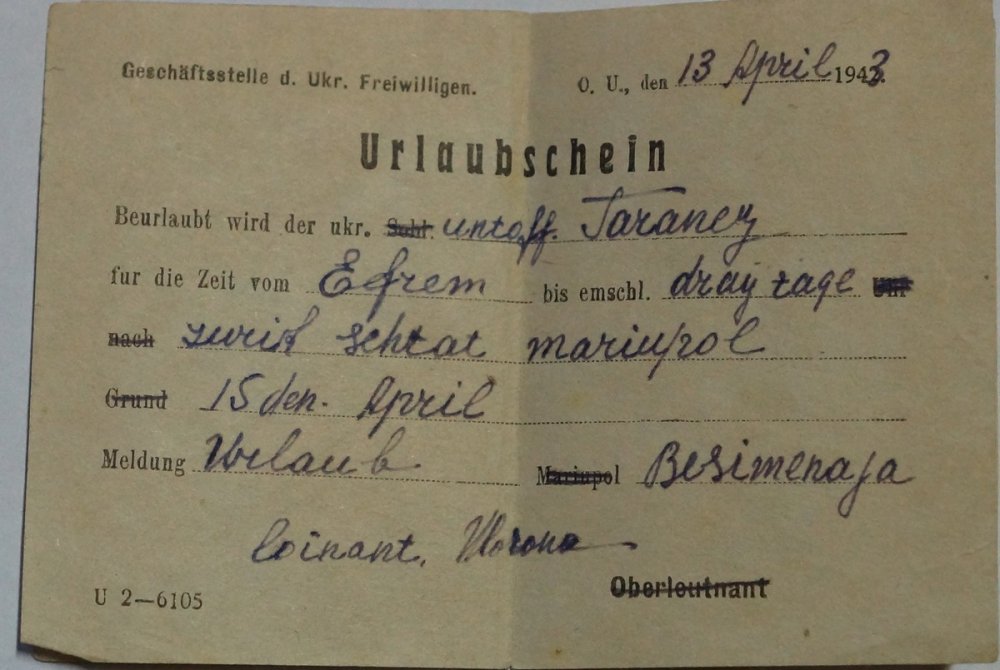 Geschäftsstelle d. Ukr. Freiwilligen.
O. U., den 13 April 1943.
Urlaubschein
Beurlaubt wird der ukr. Sold. untoff. Taranez
fur die Zeit vom Efrem bis emschl. dray tage Uhr
nach zurik schtat mariupol
Grund 15 den. April
Meldung Urlaub Mariupol Besimenaja
loinant. Worona
Oberleutnant
U 2—6105